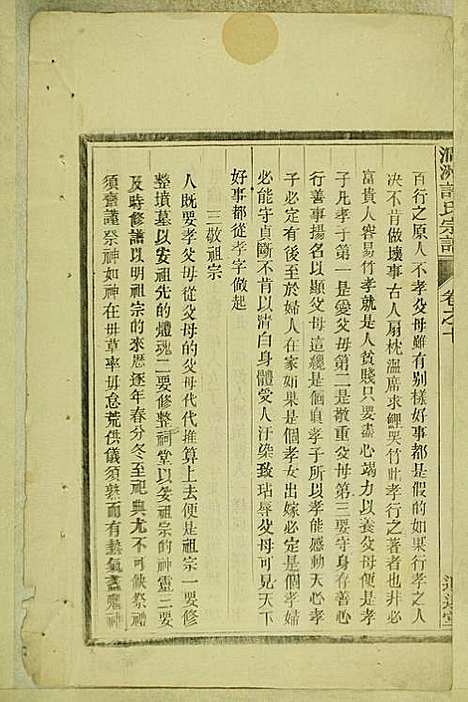 許氏宗譜
卷之十
百行之原人不孝父母雖有別樣好事都是假的如果行孝之人
决不肯做壞事古人扇枕溫席求鯉哭竹此孝行之著者也非必
富貴人容易竹孝就是人貧賤只要盡心竭力以養父母便是孝
子凡孝子第一是愛父母第二是敬重父母第三要守身存善心
行善事揚名以顯父母這纔是個真孝子所以孝能感動天心孝
子必定有後至於婦人在家如果是個孝女出嫁必定是個孝婦
必能守貞斷不肯以清白身體愛人汙染致玷辱父母可見天下
好事都從孝字做起
三敬祖宗
人既要孝父母從父母的父母代代推算上去便是祖宗一要修
整墳墓以安祖先的體魂二要修整祠堂以妥祖宗的神靈三要
及時修譜以明祖宗的來歷逐年春分冬至祀典尤不可缺祭禮
須齋謹祭神如神在毋草率毋怠荒供儀須熟而有熱氣蓋鬼神